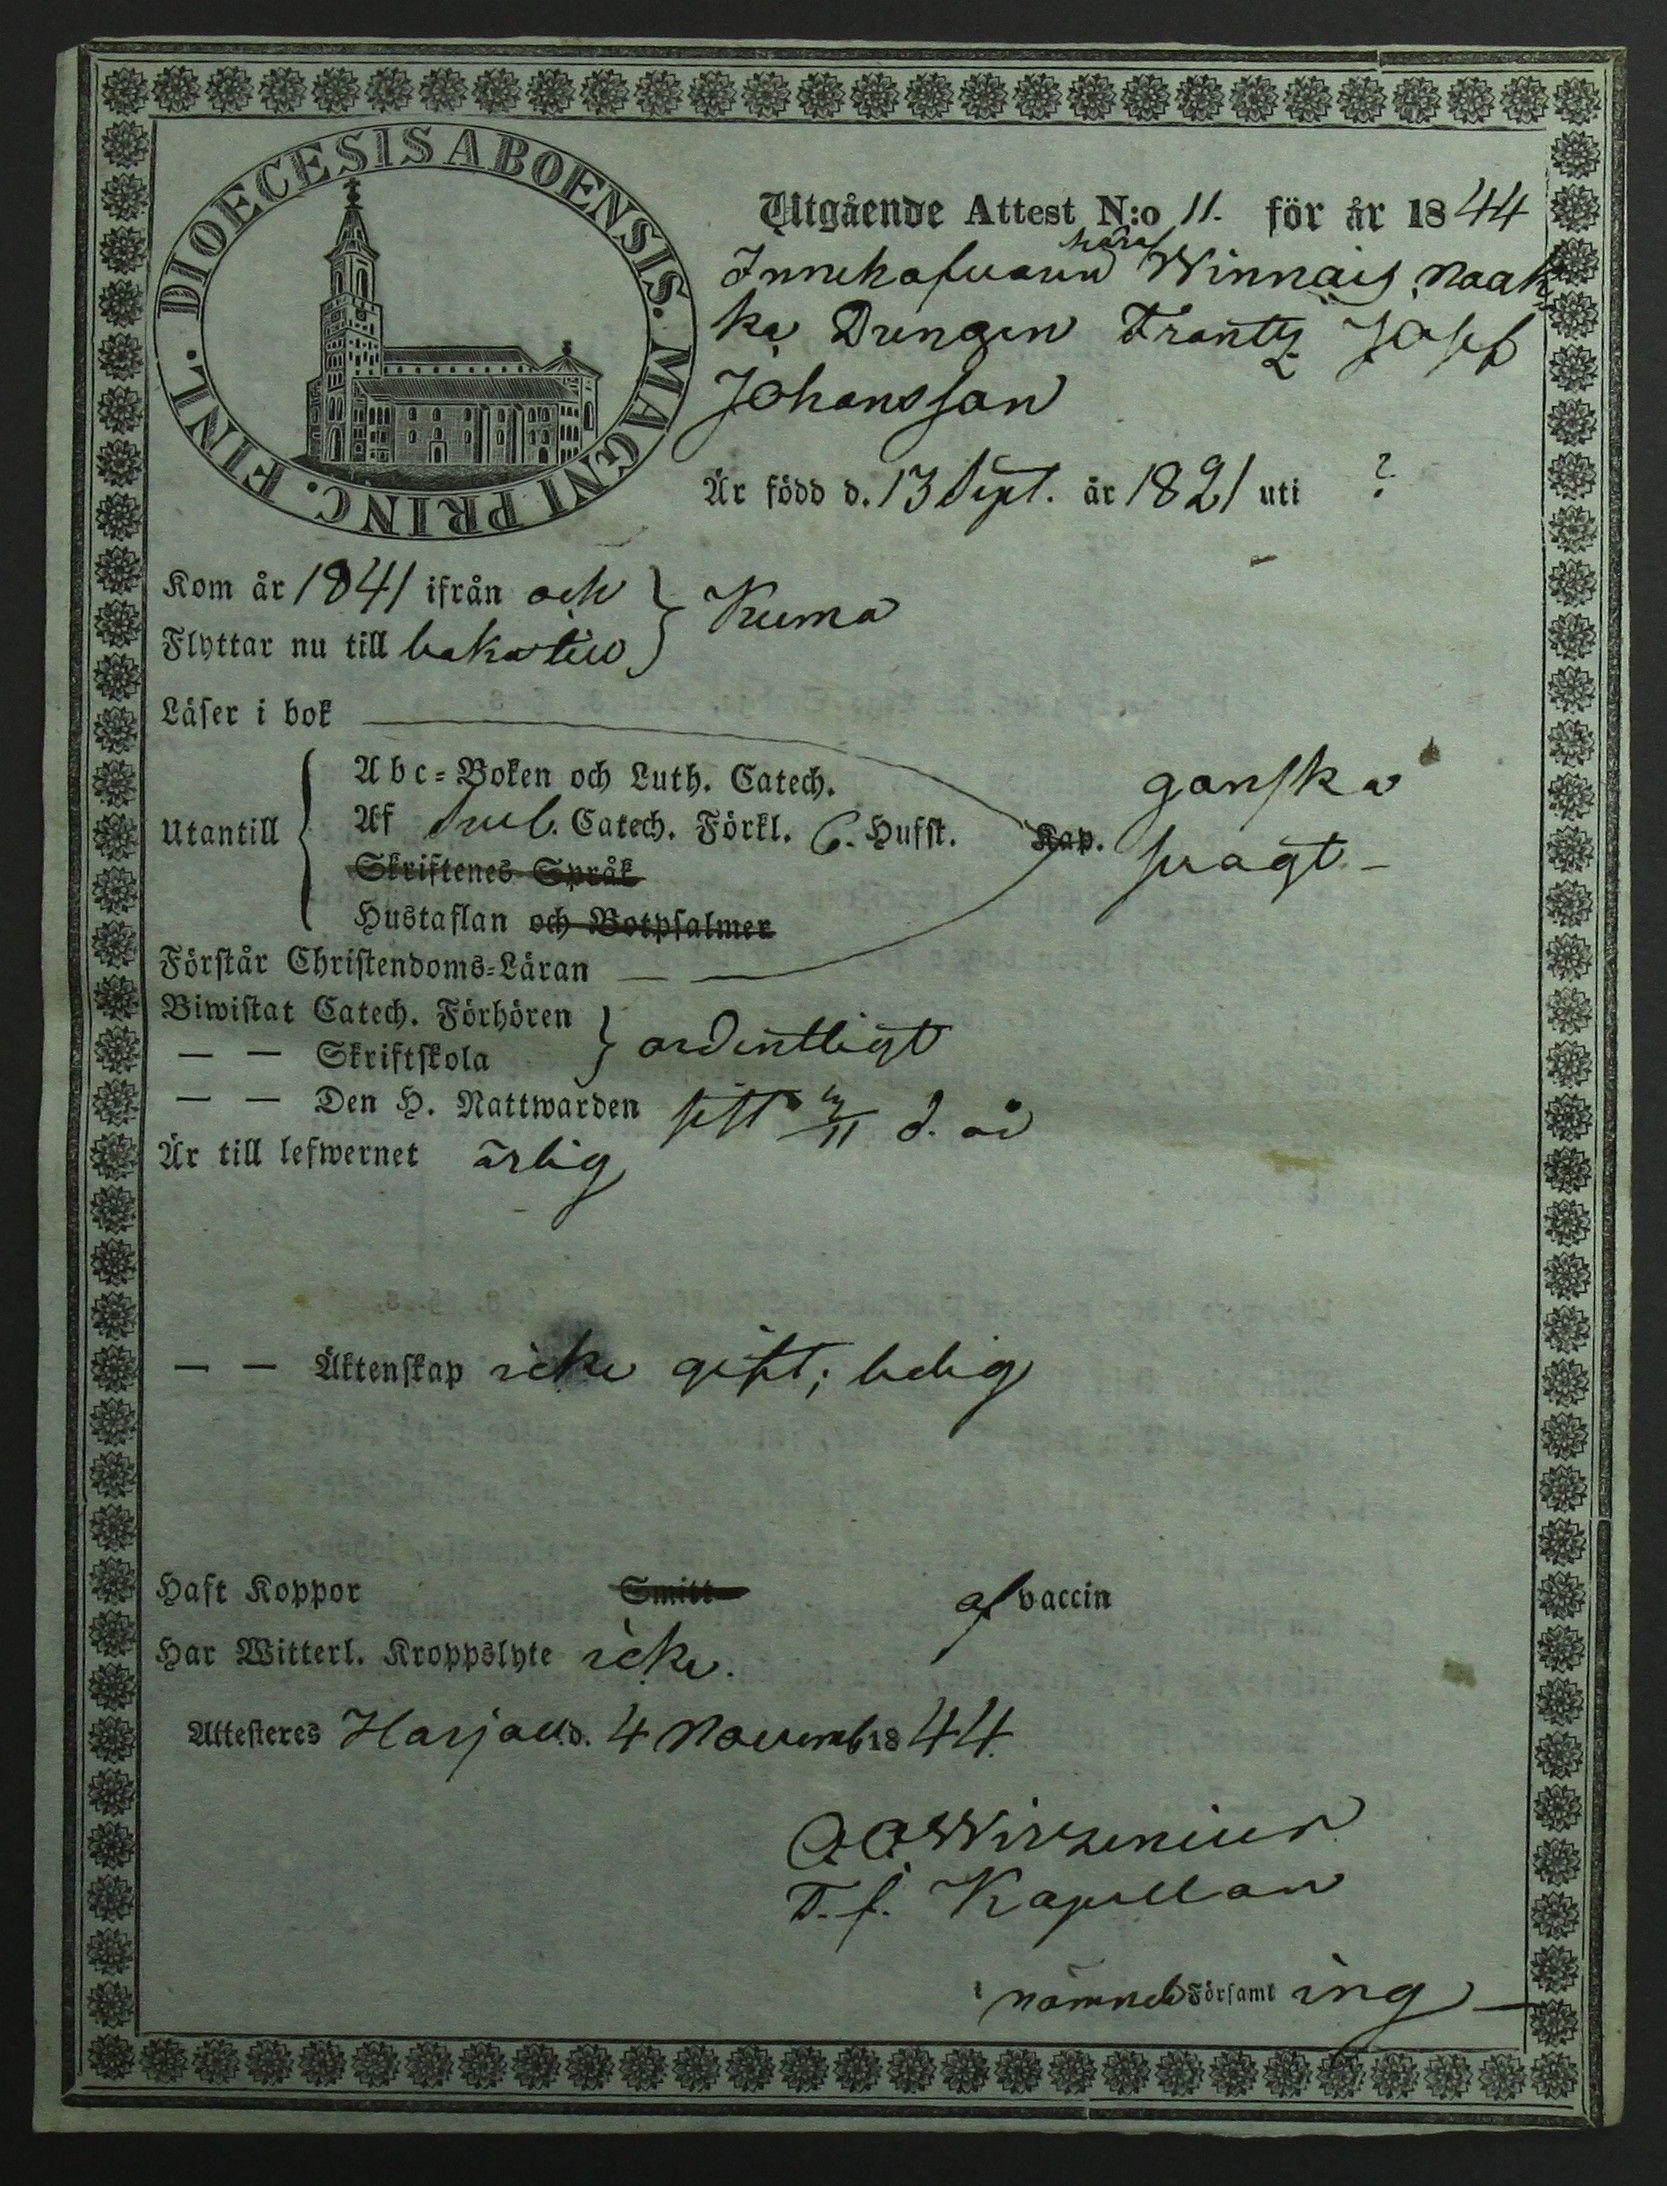 DIOECESIS ABOENSIS. MAGNI PRINC. FINL.
Utgående Attest N:o 11. för år 1844
Innehafvaren Winnais
ka Drengen Frantz Josef
Johansson
Är född d. 13 Sept. år 1821 uti ?
Kom år 1841 ifrån och
Flyttar nu till
Kumo
Läser i bok
Abc-Boken och Luth. Catech. ganska
Utantill Af Sveb. Catech. Förkl. 6. Hufst. Kap. svagt.
Skriftenes Språk
Hustaflan och Botpsalmer
Förstår Christendoms-Läran
Biwistat Catech. Förhören
— — Skriftskola ordentligt
— — Den H. Nattwarden sist 3/11 d. å
Är till lefwernet ärlig
— — Äktenskap icke gift; ledig
Haft Koppor Smitt af vaccin
Har Witterl. Kroppslyte icke.
Attesteres Harjav. d. 4 Novemb 1844.
Wirzenius
T. f. Kapellan
i nämnde Församl ing